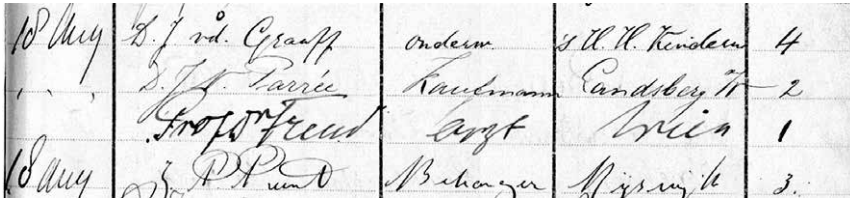 18 Aug D. J. vd. Graaff onderw. 's H. H. Kinderen 4
" " D. J. W. Parrée Kaufmann Landsberg W 2
Prof Dr Freud Arzt Wien 1
18 aug Behanger Rijswijk 3.